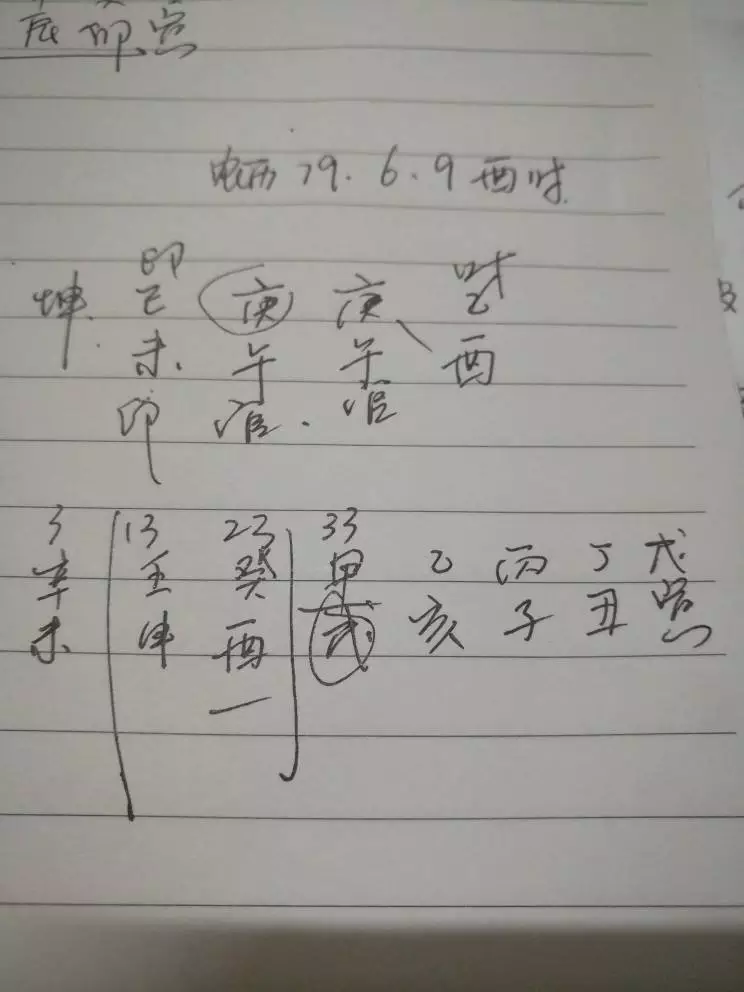 辰 卯 寅
历 79.6.9 酉时
印 财
坤. 己 庚 庚 乙
未. 午 午 酉
印 官. 官
3 13 23 33
辛 壬 癸 甲 乙 丙 丁 戊
未 申 酉 戌 亥 子 丑 寅